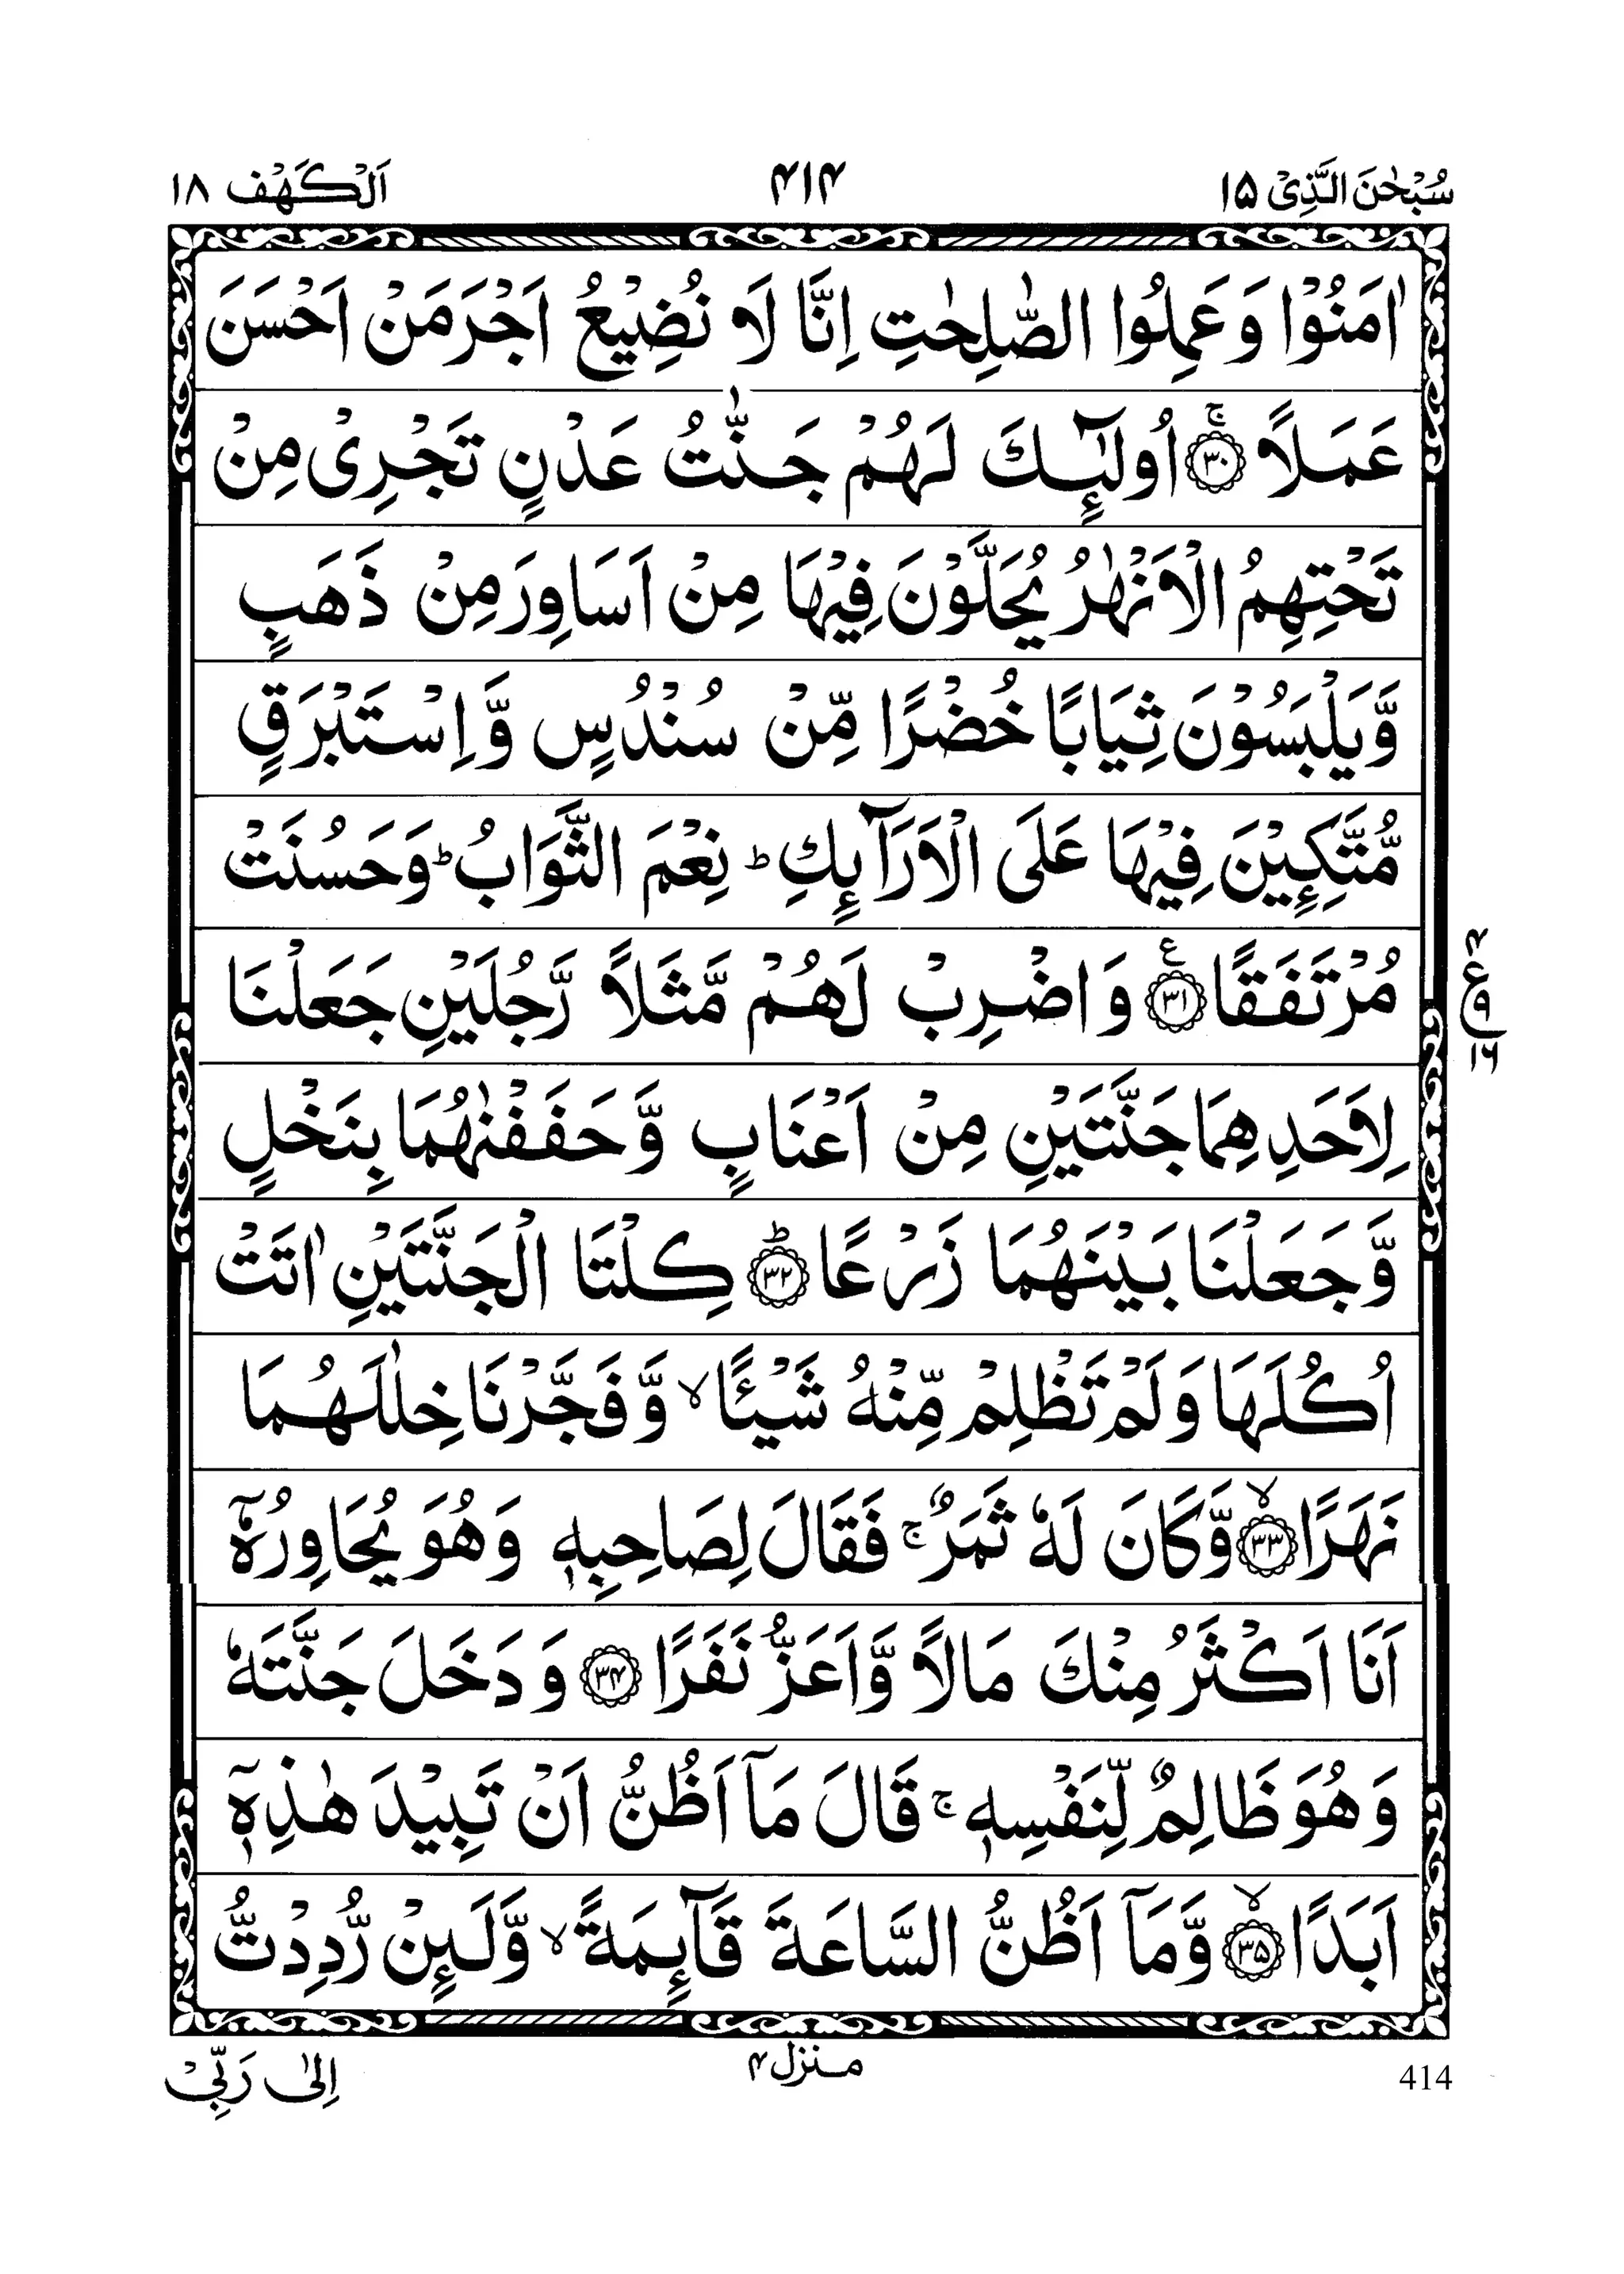 سُبْحٰنَ الَّذِیْ ۱۵ ۴۱۴ اَلْكَهْف ۱۸
اٰمَنُوْا وَ عَمِلُوا الصّٰلِحٰتِ اِنَّا لَا نُضِیْعُ اَجْرَ مَنْ اَحْسَنَ
عَمَلًا ۚ۝۳۰ اُولٰٓىِٕكَ لَهُمْ جَنّٰتُ عَدْنٍ تَجْرِیْ مِنْ
تَحْتِهِمُ الْاَنْهٰرُ یُحَلَّوْنَ فِیْهَا مِنْ اَسَاوِرَ مِنْ ذَهَبٍ
وَّ یَلْبَسُوْنَ ثِیَابًا خُضْرًا مِّنْ سُنْدُسٍ وَّ اِسْتَبْرَقٍ
مُّتَّكِـِٕیْنَ فِیْهَا عَلَى الْاَرَآىِٕكِ ؕ نِعْمَ الثَّوَابُ ؕ وَ حَسُنَتْ
مُرْتَفَقًا ۠۝۳۱ وَ اضْرِبْ لَهُمْ مَّثَلًا رَّجُلَیْنِ جَعَلْنَا
ع ۴ ۹ ۱۶
لِاَحَدِهِمَا جَنَّتَیْنِ مِنْ اَعْنَابٍ وَّ حَفَفْنٰهُمَا بِنَخْلٍ
وَّ جَعَلْنَا بَیْنَهُمَا زَرْعًا ؕ۝۳۲ كِلْتَا الْجَنَّتَیْنِ اٰتَتْ
اُكُلَهَا وَ لَمْ تَظْلِمْ مِّنْهُ شَیْـًٔا ۙ وَّ فَجَّرْنَا خِلٰلَهُمَا
نَهَرًا ۙ۝۳۳ وَّ كَانَ لَهٗ ثَمَرٌ ۚ فَقَالَ لِصَاحِبِهٖ وَ هُوَ یُحَاوِرُهٗۤ
اَنَا اَكْثَرُ مِنْكَ مَالًا وَّ اَعَزُّ نَفَرًا ۝۳۴ وَ دَخَلَ جَنَّتَهٗ
وَ هُوَ ظَالِمٌ لِّنَفْسِهٖ ۚ قَالَ مَاۤ اَظُنُّ اَنْ تَبِیْدَ هٰذِهٖۤ
اَبَدًا ۙ۝۳۵ وَّ مَاۤ اَظُنُّ السَّاعَةَ قَآىِٕمَةً ۙ وَّ لَىِٕنْ رُّدِدْتُّ
414 منزل ۴ اِلٰى رَبِّیْ